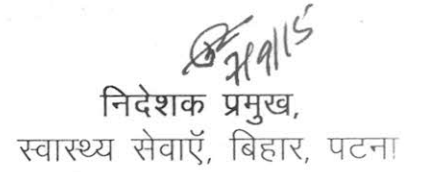 7/9/15
निदेशक प्रमुख,
स्वास्थ्य सेवाऍ, बिहार, पटना